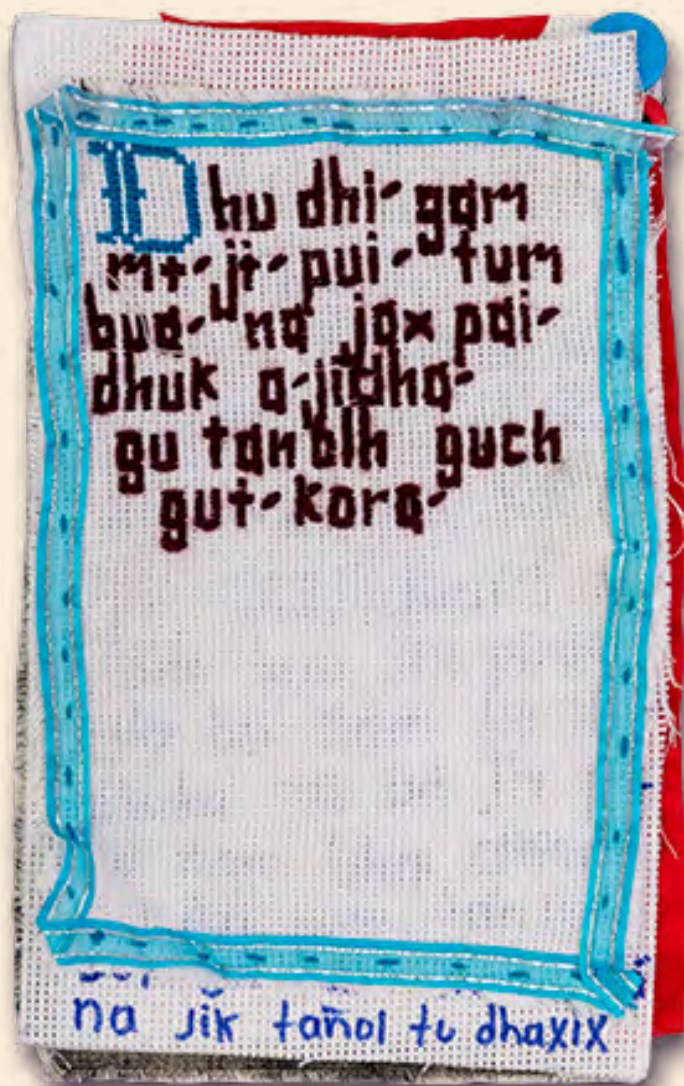 Dhu dhi-gam
mt-ji-pui- tum
bua- na jax pai-
dhuk a-jidha-
gu tanolh guch
gut-kora-
na jik tañol tu dhaxix